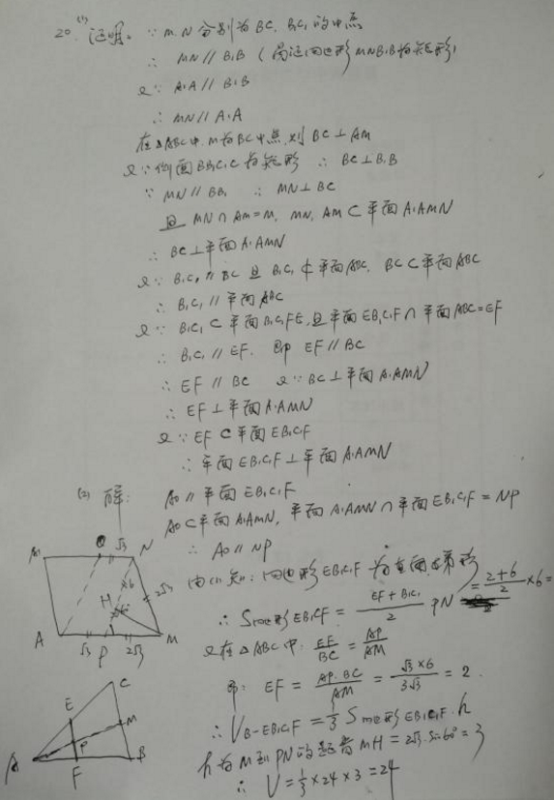 20. (1) 证明。∵ M.N 分别为BC. B₁C₁的中点
∴ MN // B₁B (
又∵ A₁A // B₁B
∴ MN // A₁A
在△ABC中. M为BC中点. 则 BC⊥AM
又∵侧面BB₁C₁C为矩形 ∴ BC⊥B₁B
∵ MN // BB₁ ∴ MN⊥BC
且 MN∩AM=M. MN, AM⊂平面A₁AMN
∴ BC⊥平面A₁AMN
又∵ B₁C₁ // BC 且 B₁C₁⊄平面ABC. BC⊂平面ABC
∴ B₁C₁ // 平面ABC
又∵ B₁C₁⊂平面B₁C₁FE, 且平面EB₁C₁F∩平面ABC=EF
∴ B₁C₁ // EF. 即 EF // BC
∴ EF // BC 又∵ BC⊥平面A₁AMN
∴ EF⊥平面A₁AMN
又∵ EF⊂平面EB₁C₁F
∴ 平面EB₁C₁F⊥平面A₁AMN
(2) 解: AO // 平面EB₁C₁F
AO⊂平面A₁AMN, 平面A₁AMN∩平面EB₁C₁F=NP
∴ AO // NP
由(1)知: 四边形EB₁C₁F为
∴ S四边形EB₁C₁F = (EF+B₁C₁)/2 PN = (2+6)/2 ×6 =
又在△ABC中. EF/BC = AP/AM
即: EF = AP·BC/AM = √3×6/3√3 = 2
∴ V_B-EB₁C₁F = 1/3 S四边形EB₁C₁F · h
h为M到PN的距离 MH=2√3·sin60°=3
∴ V = 1/3 ×24×3=24
A₁ O √3 N
6 2√3
H 60°
A √3 P 2√3 M
C
E
M
P
A F B